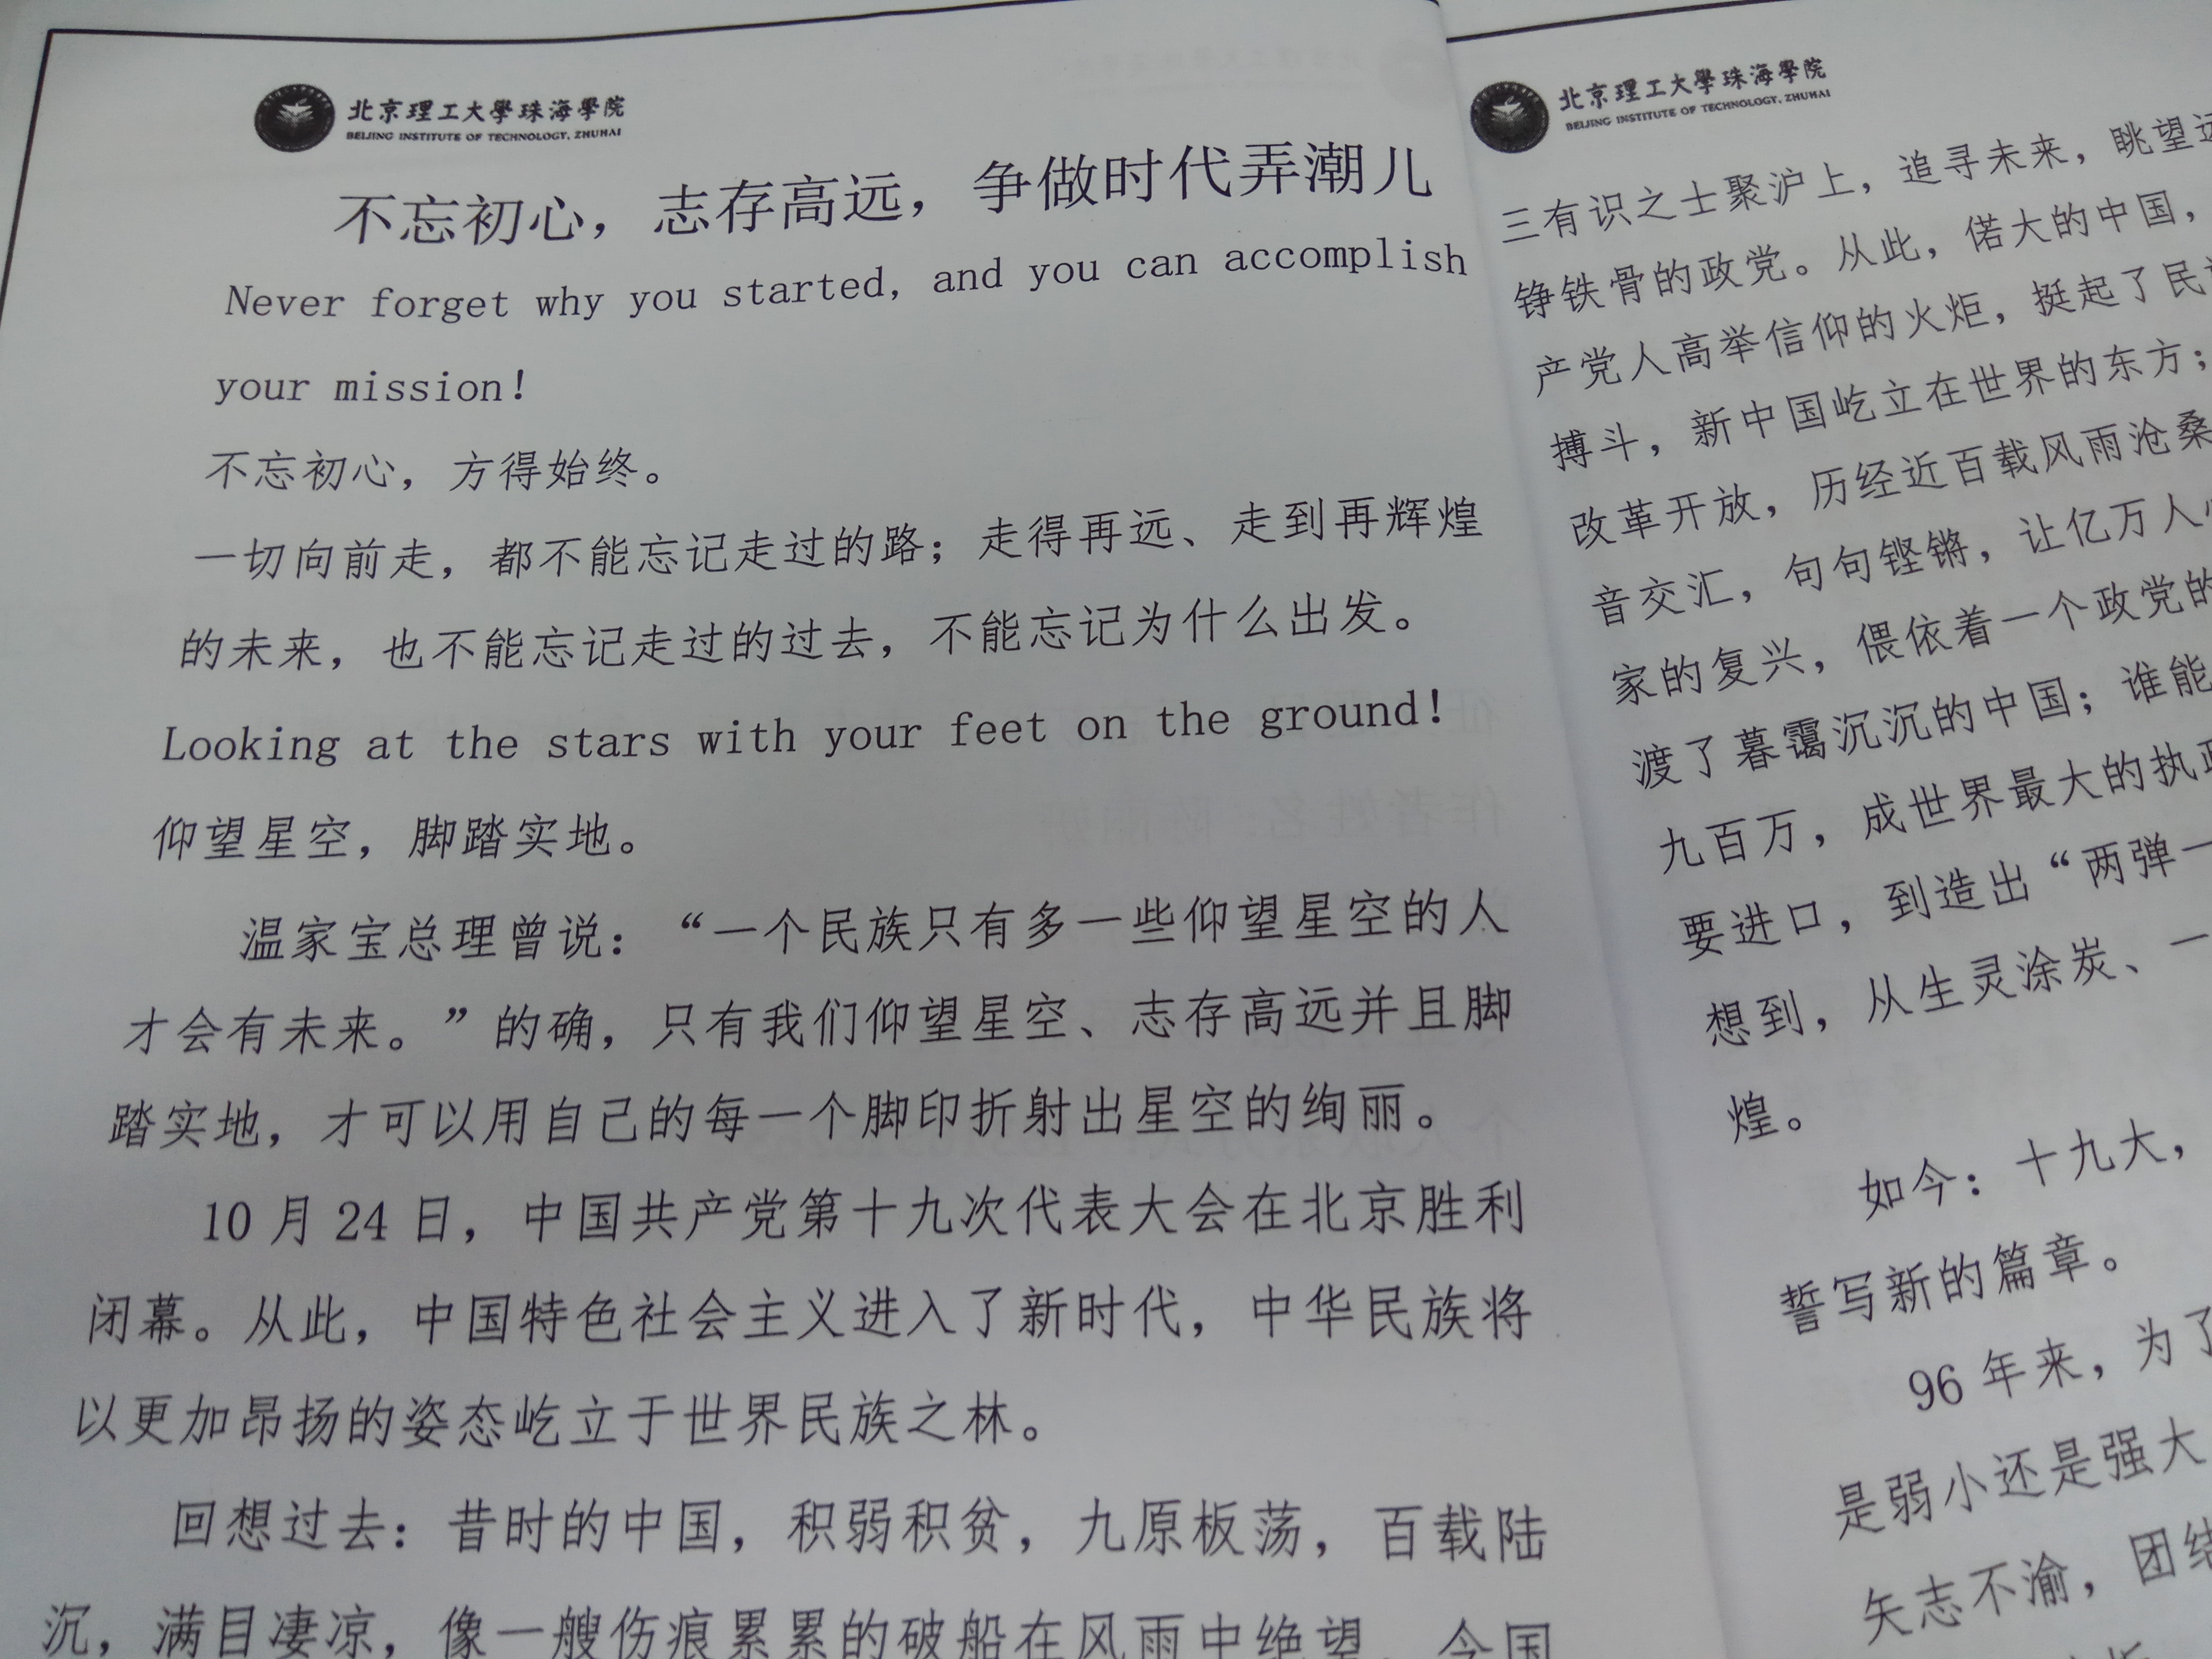 北京理工大學珠海學院
BEIJING INSTITUTE OF TECHNOLOGY, ZHUHAI
不忘初心，志存高远，争做时代弄潮儿
Never forget why you started, and you can accomplish
your mission!
不忘初心，方得始终。
一切向前走，都不能忘记走过的路；走得再远、走到再辉煌
的未来，也不能忘记走过的过去，不能忘记为什么出发。
Looking at the stars with your feet on the ground!
仰望星空，脚踏实地。
温家宝总理曾说：“一个民族只有多一些仰望星空的人
才会有未来。”的确，只有我们仰望星空、志存高远并且脚
踏实地，才可以用自己的每一个脚印折射出星空的绚丽。
10 月 24 日，中国共产党第十九次代表大会在北京胜利
闭幕。从此，中国特色社会主义进入了新时代，中华民族将
以更加昂扬的姿态屹立于世界民族之林。
回想过去：昔时的中国，积弱积贫，九原板荡，百载陆
沉，满目凄凉，像一艘伤痕累累的破船在风雨中绝望。今国
北京理工大學珠海學院
BEIJING INSTITUTE OF TECHNOLOGY, ZHUHAI
三有识之士聚沪上，追寻未来，眺望远
铮铁骨的政党。从此，偌大的中国，
产党人高举信仰的火炬，挺起了民
搏斗，新中国屹立在世界的东方；
改革开放，历经近百载风雨沧桑
音交汇，句句铿锵，让亿万人
家的复兴，偎依着一个政党的
渡了暮霭沉沉的中国；谁能
九百万，成世界最大的执政
要进口，到造出“两弹一
想到，从生灵涂炭、一
煌。
如今：十九大，
誓写新的篇章。
96 年来，为了
是弱小还是强大
矢志不渝，团结